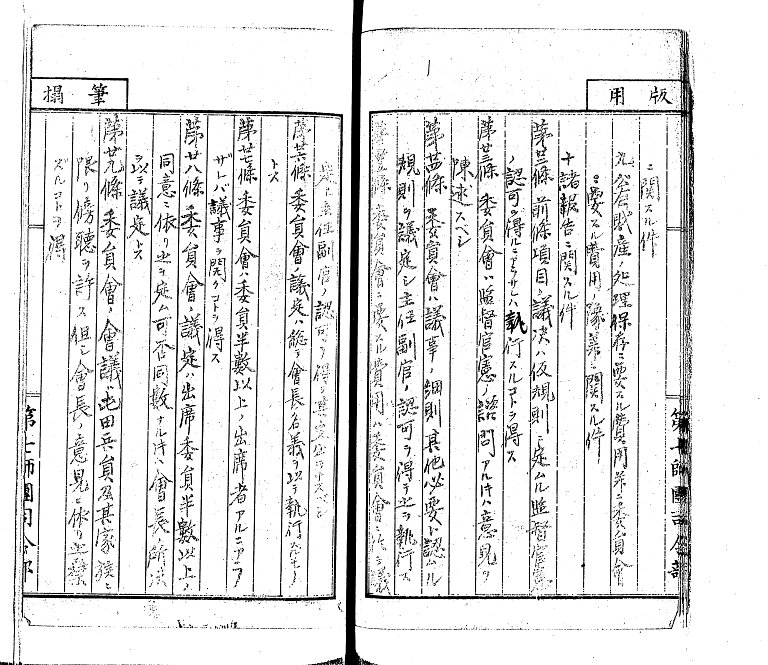 版用
ニ関スル件
九、公会財産ノ処理保存ニ要スル費用并ニ委員會
ニ要スル費用ノ豫算ニ関スル件
十 諸報告ニ関スル件
第廿二條 前條項目ノ議決ハ仮規則ニ定ムル監督官憲
ノ認可ヲ得ルニアラサレハ執行スルコトヲ得ス
第廿三條 委員會ハ監督官憲ノ諮問アルトキハ意見ヲ
陳述スベシ
第廿四條 委員會ハ議事ノ細則其他必要ト認ムル
規則ヲ議定シ主任副官ノ認可ヲ得テ之ヲ執行ス
第廿五條 委員會ニ要スル費用ハ委員會ニ議
定シ主任副官ノ認可ヲ得
第廿六條 委員會ノ議定ハ総テ會長名義ヲ以テ執行スルモノ
トス
第廿七條 委員會ハ委員半數以上ノ出席者アルニアラ
ザレバ議事ヲ開クコトヲ得ス
第廿八條 委員會ノ議定ハ出席委員半數以上ノ
同意ニ依リ之ヲ定ム可否同數ナルトキハ會長ノ所決
ヲ以テ議定トス
第廿九條 委員會ノ會議ハ屯田兵員及其家族ニ
限リ傍聴ヲ許ス但シ會長ノ意見ニ依リ之ヲ禁
ズルコトヲ得
筆搨
第七師團司令部
第七師團司令部